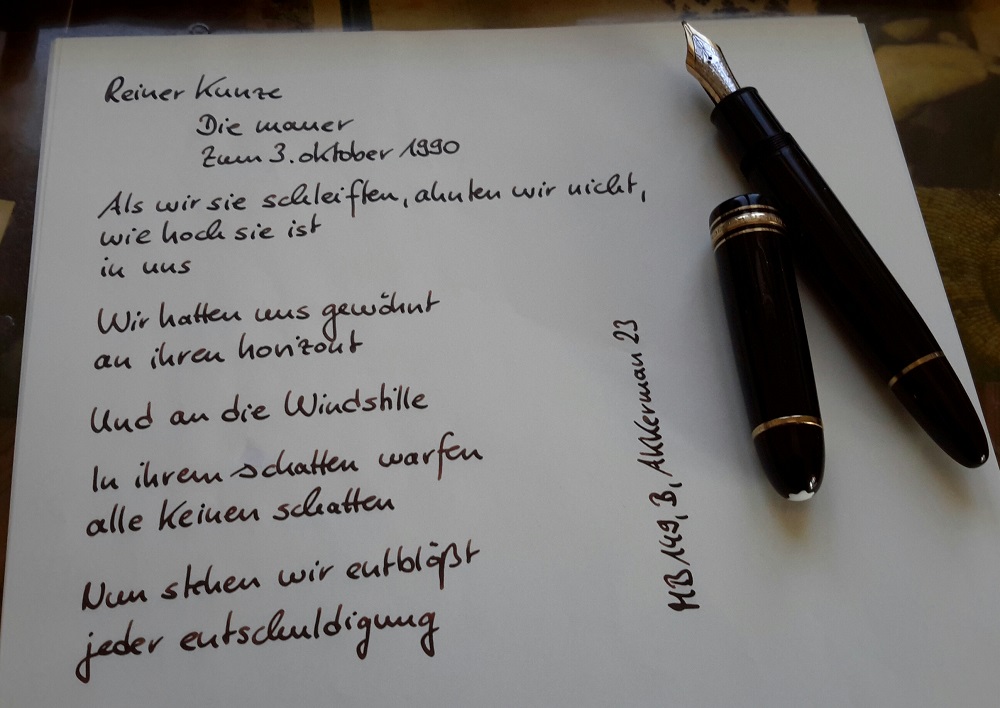 Reiner Kunze
Die mauer
Zum 3. oktober 1990
Als wir sie schleiften, ahnten wir nicht,
wie hoch sie ist
in uns
Wir hatten uns gewöhnt
an ihren horizont
Und an die Windstille
In ihrem schatten warfen
alle keinen schatten
Nun stehen wir entblößt
jeder entschuldigung
MB 149, B, Akkerman 23